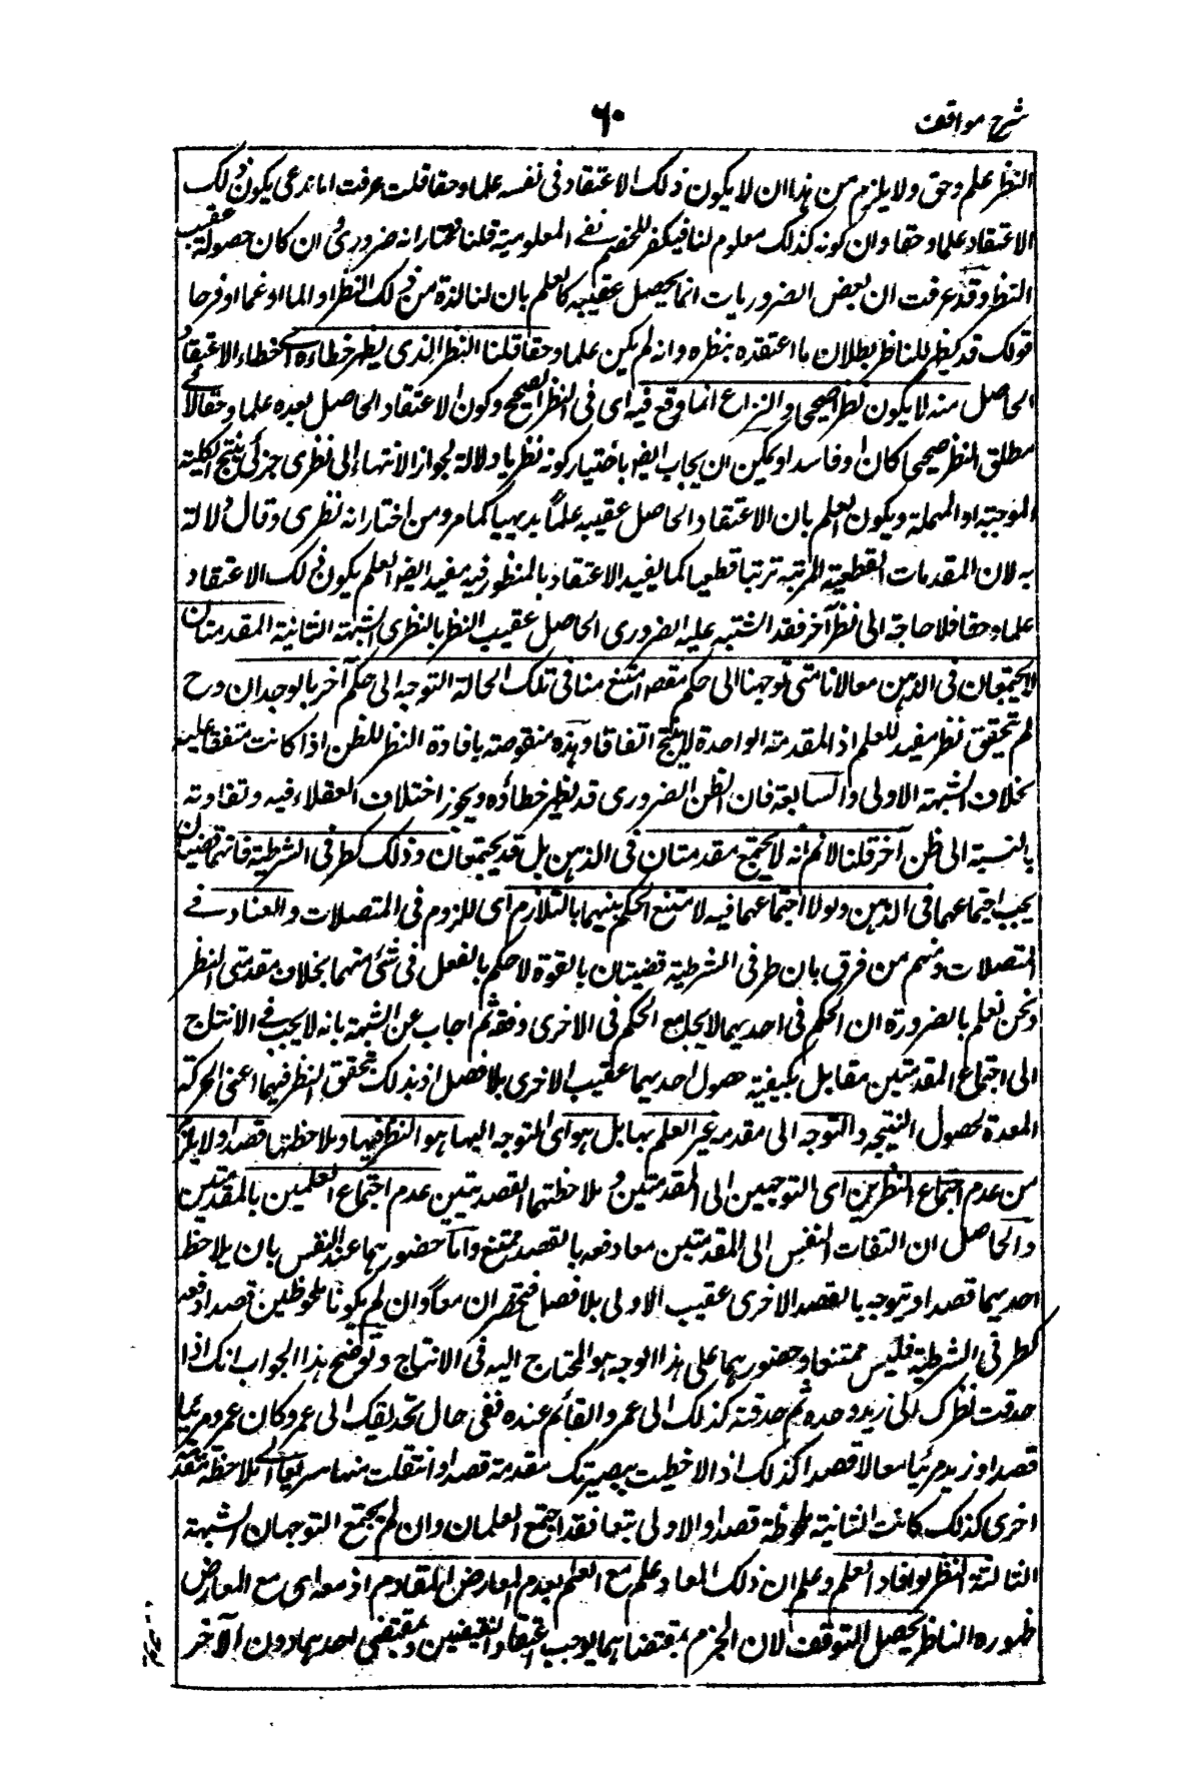 شرح مواقف
٦٠
النظر علم وحق ولا يلزم من هذا ان لا يكون ذلك الاعتقاد فى نفسه علما وحقا قلت عرفت اما ندعى يكون ذلك
الاعتقاد علما وحقا وان كونه كذلك معلوم لنا فيكفر للخصم نفى المعلومية قلنا نختار انه ضرورى وان كان حصوله عقيب
النظر وقد عرفت ان بعض الضروريات انما يحصل عقيبه كالعلم بان لنا لذة من ذلك النظر او الما او غما او فرحا
قولك قد يظهر للناظر بطلان ما اعتقده بنظره وانه لم يكن علما وحقا قلنا النظر الذى يظهر خطاؤه اى خطاء الاعتقاد
الحاصل منه لا يكون نظرا صحيحا والنزاع انما وقع فيه اى فى النظر الصحيح وكون الاعتقاد الحاصل بعده علما وحقا لا فى
مطلق النظر صحيحا كان او فاسدا ويمكن ان يجاب ايضا باختيار كونه نظريا ولا لة لجواز الانتهاء الى نظرى جزئى ينتج الكلية
الموجبة او المهملة ويكون العلم بان الاعتقاد الحاصل عقيبه علما بديهيا كما مر ومن اختار انه نظرى وقال لا لة
به لان المقدمات القطعية المرتبة ترتبا قطعيا كما يفيد الاعتقاد بالمنظور فيه مفيد ايضا العلم يكون ذلك الاعتقاد
علما وحقا فلا حاجة الى نظر آخر فقد اشتبه عليه الضرورى الحاصل عقيب النظر بالنظرى الشبهة الثانية المقدمتان
لا يجتمعان فى الذهن معا لانا متى توجهنا الى حكم مقصود امتنع منا فى تلك الحالة التوجه الى حكم آخر بالوجدان وح
لم يتحقق نظر مفيد للعلم اذ المقدمة الواحدة لا ينتج اتفاقا وهذه منقوضة بافادة النظر للظن اذا كانت متفقا عليه
بخلاف الشبهة الاولى والسابعة فان الظن الضرورى قد يظهر خطاؤه ويجوز اختلاف العقلاء فيه وتفاوته
بالنسبة الى ظن آخر قلنا لا نم انه لا يجتمع مقدمتان فى الذهن بل قد يجتمعان وذلك كطرفى الشرطية فانهما قضيتان
يجب اجتماعهما فى الذهن ولولا اجتماعهما فيه لامتنع الحكم بينهما بالتلازم اى اللزوم فى المتصلات والعناد فى
المنفصلات ومنهم من فرق بان طرفى الشرطية قضيتان بالقوة لا حكم بالفعل فى شئ منهما بخلاف مقدمتى النظر
ونحن نعلم بالضرورة ان الحكم فى احديهما لا يجامع الحكم فى الاخرى دفعة ثم اجاب عن الشبهة بانه لا يجب فى الانتاج
الى اجتماع المقدمتين مقابل بكيفية حصول احديهما عقيب الاخرى بلا فصل اذ بذلك يتحقق النظر فيهما اعنى الحركة
المعدة لحصول النتيجة والتوجه الى مقدمة غير العلم بها بل هو اى التوجه اليها هو النظر فيها وملاحظتها قصدا ولا يلزم
من عدم اجتماع النظرين اى التوجهين الى المقدمتين وملاحظتهما القصديتين عدم اجتماع العلمين بالمقدمتين
والحاصل ان التفات النفس الى المقدمتين معا دفعة بالقصد ممتنع واما حضورهما عند النفس بان يلاحظ
احديهما قصدا ويتوجه بالقصد الاخرى عقيب الاولى بلا فصل فتحضران معا وان لم يكونا ملحوظتين قصدا دفعة
كطرفى الشرطية فليس ممتنعا وحضورهما على هذا الوجه هو المحتاج اليه فى الانتاج وتوضيح هذا الجواب انك اذا
حدقت نظرك الى زيد وحده ثم حدقته كذلك الى عمرو القائم عنده ففى حال تحديقك الى عمرو كان عمرو مرئيا
قصدا وزيد مرئيا معا لا قصدا كذلك اذا لاحظت ببصيرتك مقدمة قصدا وانتقلت منها سريعا الى ملاحظة مقدمة
اخرى كذلك كانت الثانية ملحوظة قصدا والاولى تبعا فقد اجتمع العلمان وان لم يجتمع التوجهان الشبهة
الثالثة النظر لو افاد العلم وعلم ان ذلك المفاد علم مع العلم بعدم المعارض المقاوم اذ معه اى مع المعارض
ظهوره الناظر يحصل التوقف لان الجزم بمقتضاهما يوجب اعتقاد النقيضين وبمقتضى احدهما دون الآخر